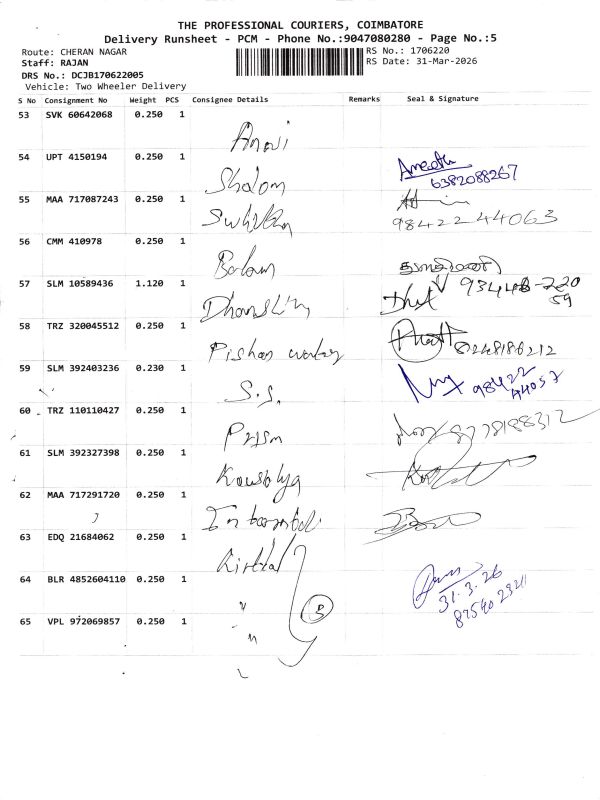 THE PROFESSIONAL COURIERS, COIMBATORE
Delivery Runsheet - PCM - Phone No.:9047080280 - Page No.:5
Route: CHERAN NAGAR
RS No.: 1706220
Staff: RAJAN
RS Date: 31-Mar-2026
DRS No.: DCJB170622005
Vehicle: Two Wheeler Delivery
S No Consignment No Weight PCS Consignee Details Remarks Seal & Signature
53 SVK 60642068 0.250 1
54 UPT 4150194 0.250 1
Shalom
6382088267
55 MAA 717087243 0.250 1
98422 44063
56 CMM 410978 0.250 1
57 SLM 10589436 1.120 1
58 TRZ 320045512 0.250 1
8248186212
59 SLM 392403236 0.230 1
S.S.
98422
44057
60 TRZ 110110427 0.250 1
Prism
8778188312
61 SLM 392327398 0.250 1
Kowsalya
62 MAA 717291720 0.250 1
63 EDQ 21684062 0.250 1
64 BLR 4852604110 0.250 1
" 3
31.3.26
65 VPL 972069857 0.250 1
"